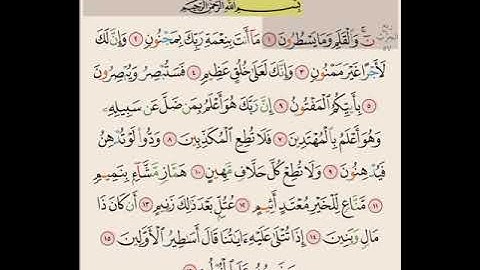 بِسْمِ اللَّهِ الرَّحْمَٰنِ الرَّحِيمِ
نٓ ۚ وَالْقَلَمِ وَمَا يَسْطُرُونَ ١ مَا أَنتَ بِنِعْمَةِ رَبِّكَ بِمَجْنُونٍ ٢ وَإِنَّ لَكَ
لَأَجْرًا غَيْرَ مَمْنُونٍ ٣ وَإِنَّكَ لَعَلَىٰ خُلُقٍ عَظِيمٍ ٤ فَسَتُبْصِرُ وَيُبْصِرُونَ
٥ بِأَييِّكُمُ الْمَفْتُونُ ٦ إِنَّ رَبَّكَ هُوَ أَعْلَمُ بِمَن ضَلَّ عَن سَبِيلِهِ
وَهُوَ أَعْلَمُ بِالْمُهْتَدِينَ ٧ فَلَا تُطِعِ الْمُكَذِّبِينَ ٨ وَدُّوا لَوْ تُدْهِنُ
فَيُدْهِنُونَ ٩ وَلَا تُطِعْ كُلَّ حَلَّافٍ مَّهِينٍ ١٠ هَمَّازٍ مَّشَّاءٍ بِنَمِيمٍ
١١ مَّنَّاعٍ لِّلْخَيْرِ مُعْتَدٍ أَثِيمٍ ١٢ عُتُلٍّ بَعْدَ ذَٰلِكَ زَنِيمٍ ١٣ أَن كَانَ ذَا
مَالٍ وَبَنِينَ ١٤ إِذَا تُتْلَىٰ عَلَيْهِ آيَاتُنَا قَالَ أَسَاطِيرُ الْأَوَّلِينَ ١٥